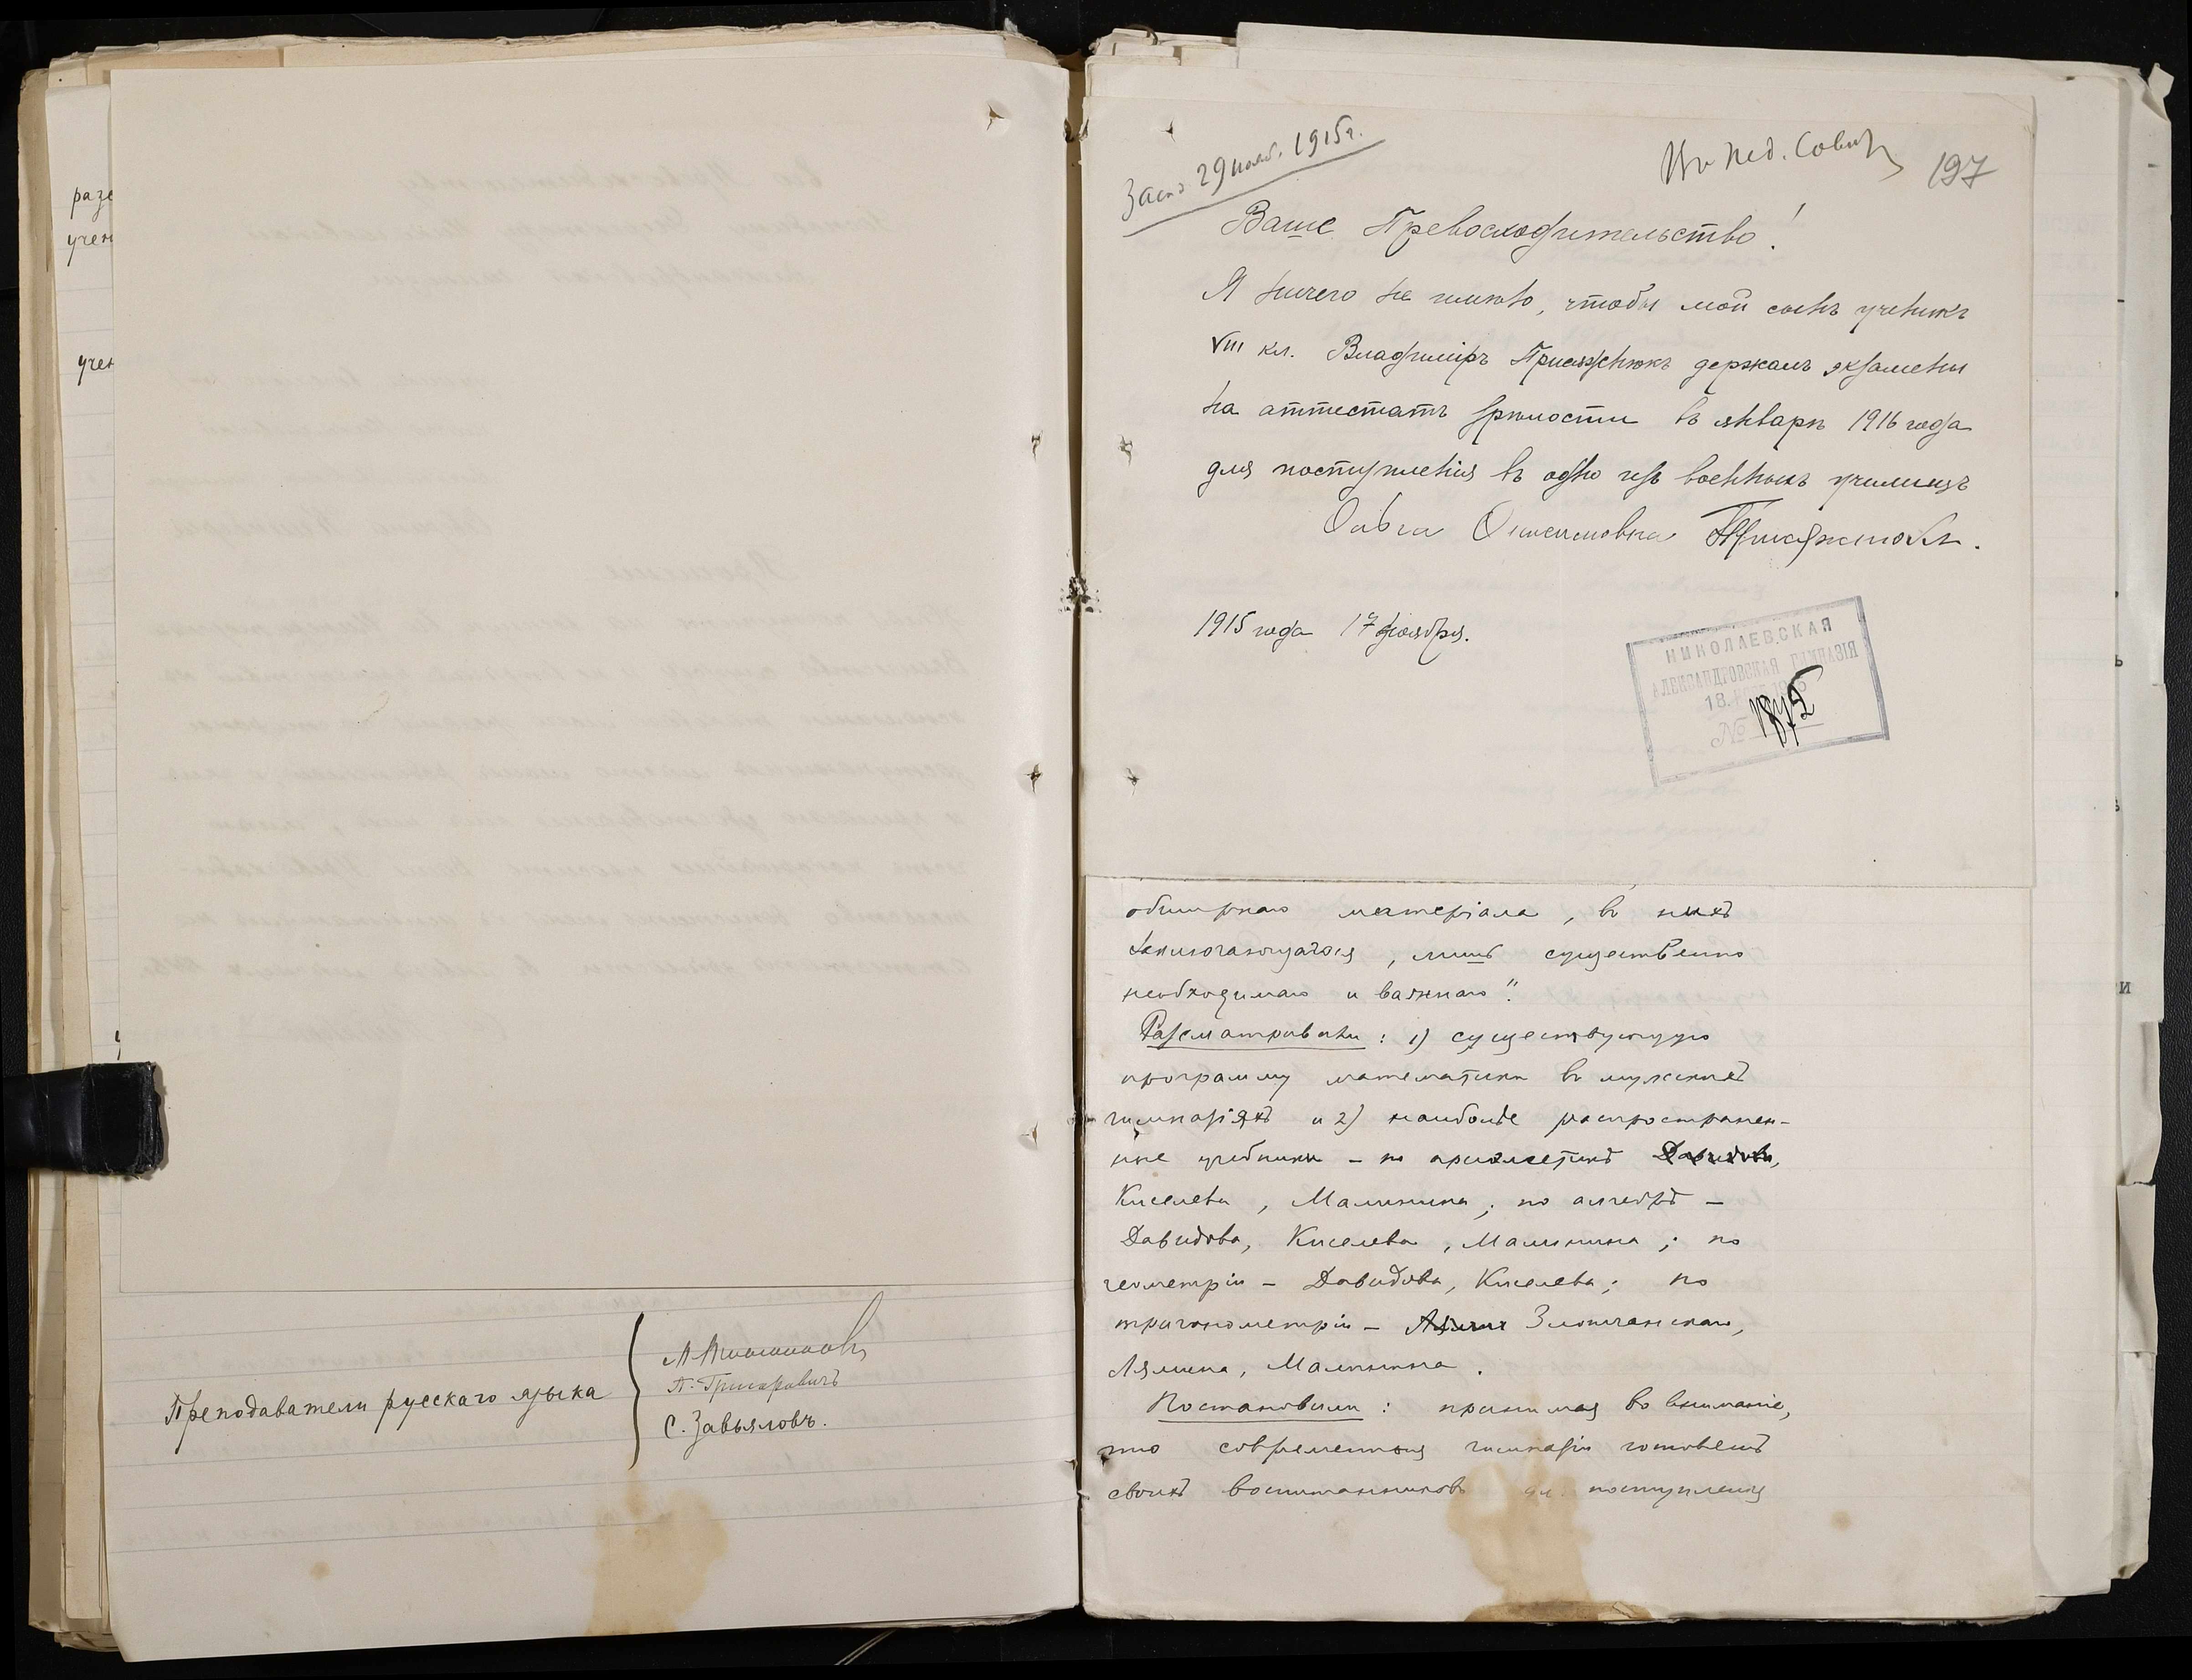 разс
учен
учен
Преподаватели русскаго языка
П. Григоровичъ
С. Завьяловъ.
Засѣд. 29 нояб. 1915 г.
Въ пед. Совѣтъ
197
Ваше Превосходительство!
Я ничего не имѣю, чтобы мой сынъ ученикъ
VIII кл. Владиміръ держалъ экзамены
на аттестатъ зрѣлости въ январѣ 1916 года
для поступленія въ одно изъ военныхъ училищъ
Ольга
1915 года 17 ноября.
НИКОЛАЕВСКАЯ
АЛЕКСАНДРОВСКАЯ ГИМНАЗІЯ
18.
№ 1872
обширнаго матеріала, въ нихъ
заключающагося, лишь существенно
необходимаго и важнаго".
Разсматривали: 1) существующую
программу математики въ мужскихъ
гимназіяхъ и 2) наиболѣе распространен-
ные учебники – по ариѳметикѣ Давидова,
Киселева, Малинина; по алгебрѣ –
Давидова, Киселева, Малинина; по
геометріи – Давидова, Киселева; по
тригонометріи – Злотчанскаго,
Лямина, Малинина.
Постановили: принимая во вниманіе,
что современная гимназія готовитъ
своихъ воспитанниковъ поступленія
и